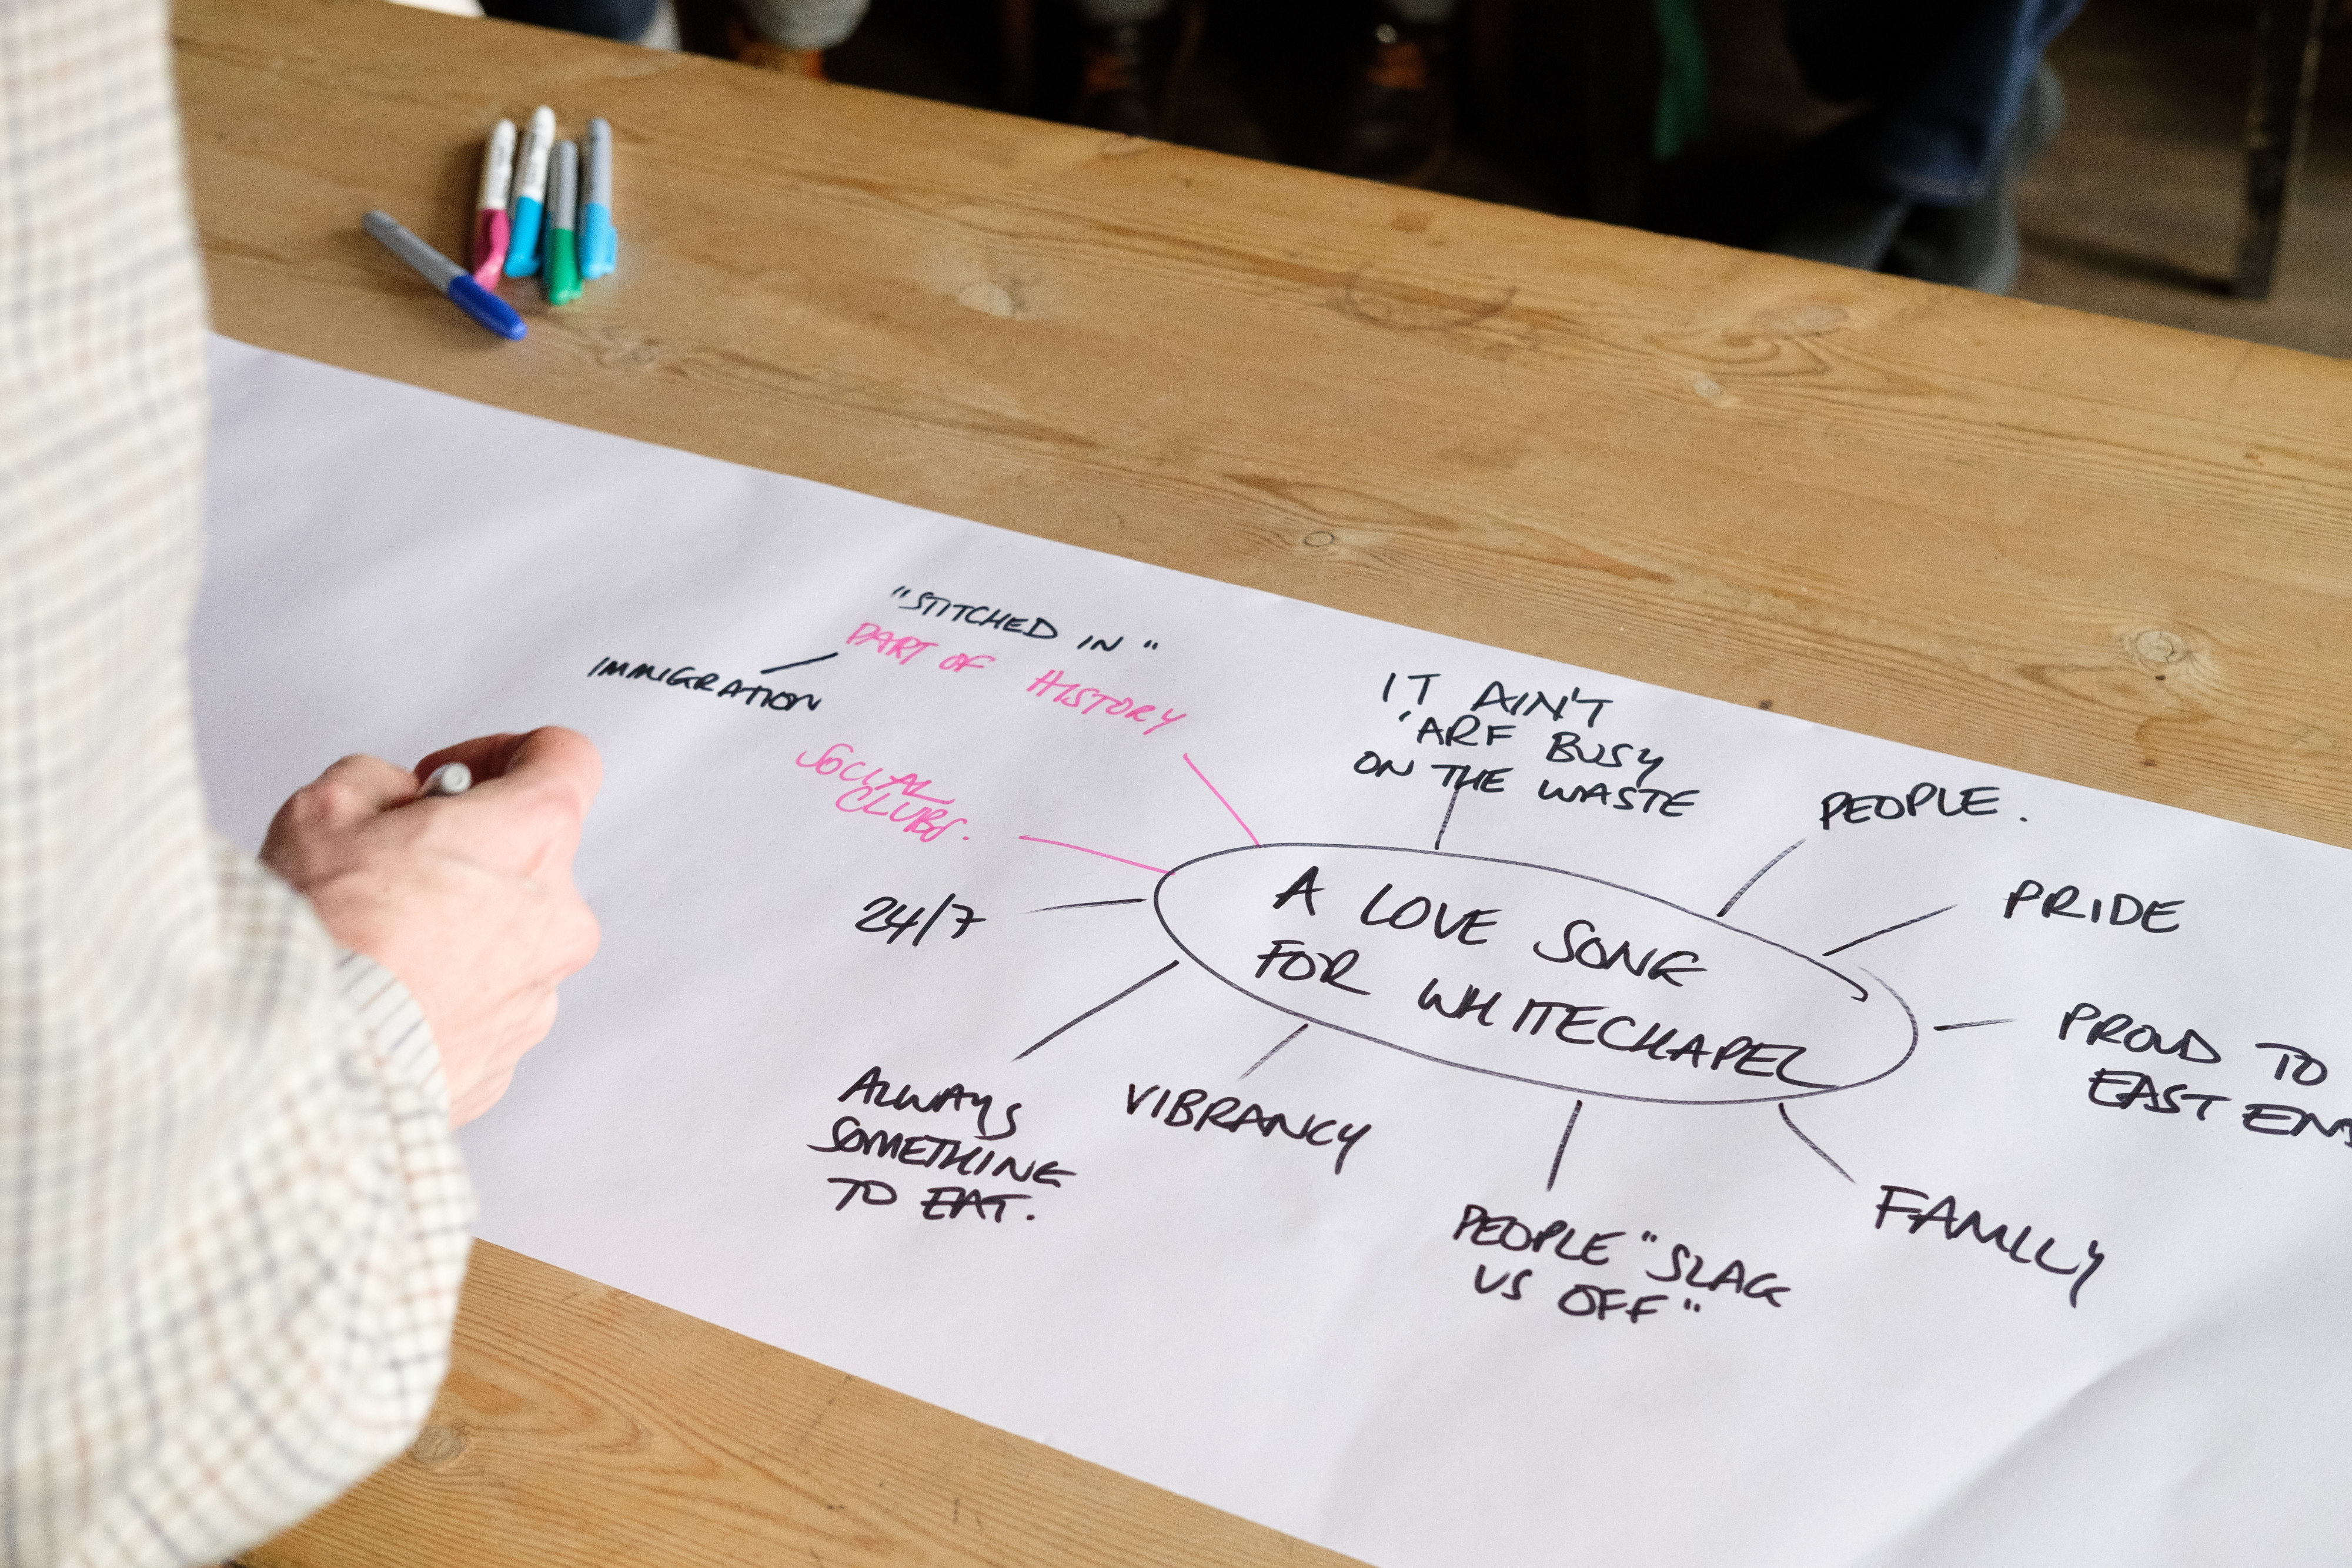 "STITCHED IN"
PART OF HISTORY
IMMIGRATION
SOCIAL
CLUBS.
24/7
IT AIN'T
'ARF BUSY
ON THE WASTE
PEOPLE.
PRIDE
A LOVE SONG
FOR WHITECHAPEL
PROUD TO
EAST
ALWAYS
SOMETHING
TO EAT.
VIBRANCY
PEOPLE "SLAG
US OFF"
FAMILY